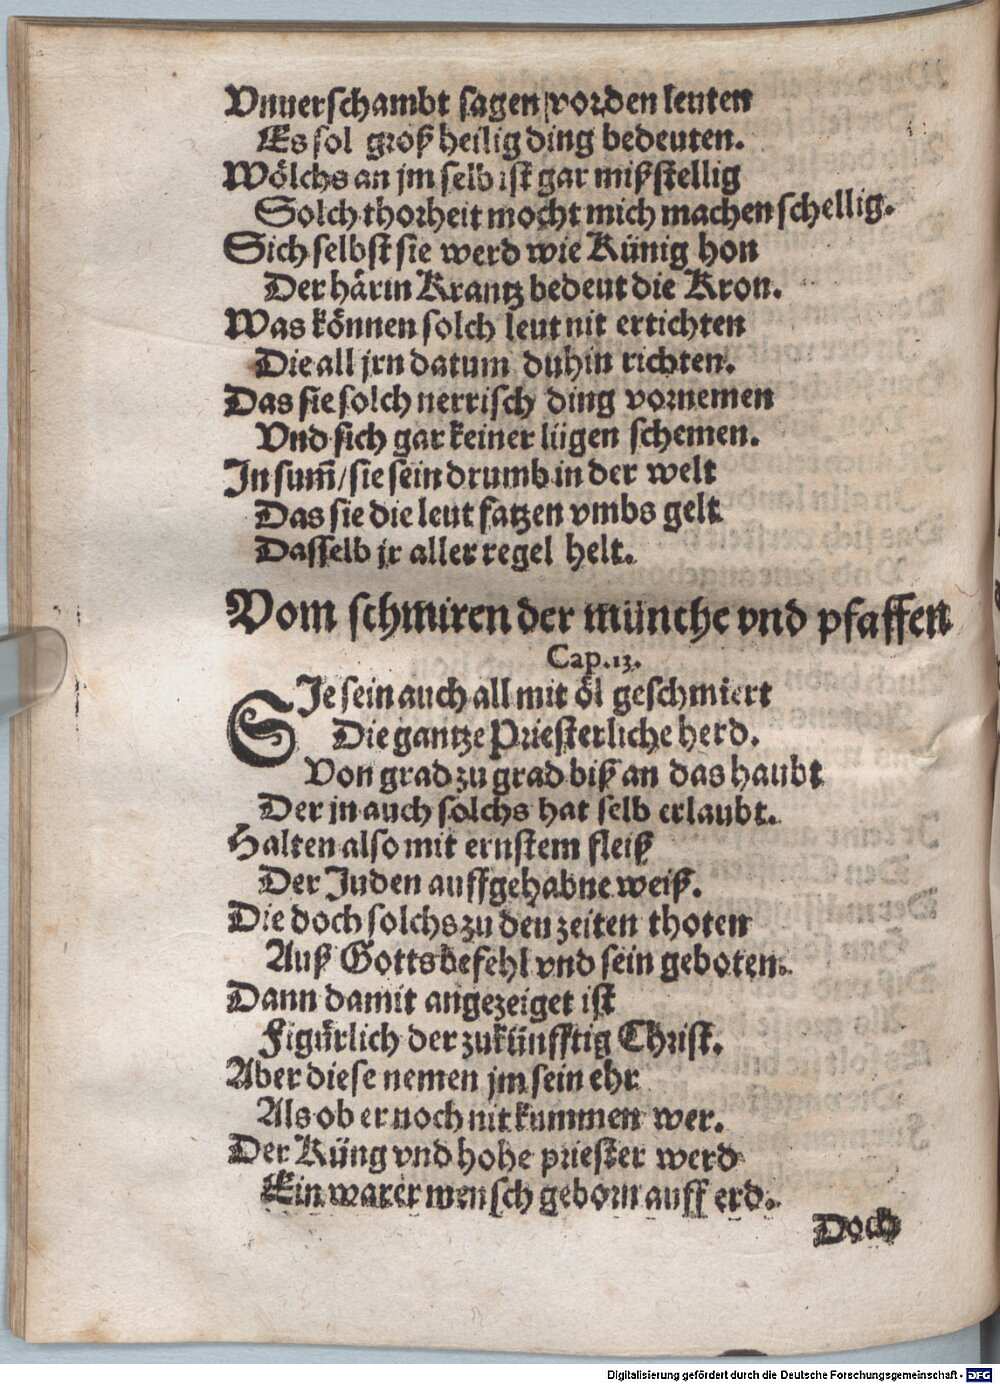 Vnuerschambt sagen vor den leuten
Es sol groß heilig ding bedeuten.
Wölchs an jm selb ist gar mißstellig
Solch thorheit mocht mich machen schellig.
Sich selbst sie werd wie Künig hon
Der härin Krantz bedeut die Kron.
Was können solch leut nit ertichten
Die all jrn datum duhin richten.
Das sie solch nerrisch ding vornemen
Vnd sich gar keiner lügen schemen.
In sum̄/ sie sein drumb in der welt
Das sie die leut fatzen vmbs gelt
Dasselb jr aller regel helt.
Vom schmiren der münche vnd pfaffen
Cap. 13.
SIe sein auch all mit öl geschmiert
Die gantze Priesterliche herd.
Von grad zu grad biß an das haubt
Der jn auch solchs hat selb erlaubt.
Halten also mit ernstem fleiß
Der Juden auffgehabne weiß.
Die doch solchs zu den zeiten thoten
Auß Gotts befehl vnd sein geboten.
Dann damit angezeiget ist
Figürlich der zukünfftig Christ.
Aber diese nemen jm sein ehr
Als ob er noch nit kummen wer.
Der Küng vnd hohe priester werd
Ein warer mensch geborn auff erd.
Doch
Digitalisierung gefördert durch die Deutsche Forschungsgemeinschaft - DFG